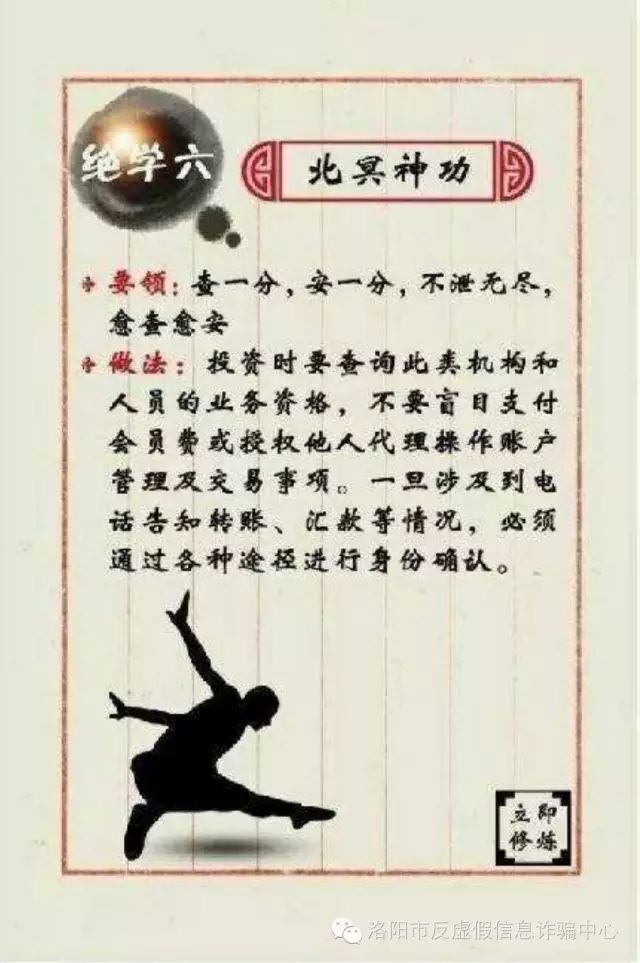 绝学六
北冥神功
要领：查一分，安一分，不泄无尽，
愈查愈安
做法：投资时要查询此类机构和
人员的业务资格，不要盲目支付
会员费或授权他人代理操作账户
管理及交易事项。一旦涉及到电
话告知转账、汇款等情况，必须
通过各种途径进行身份确认。
立即
修炼
洛阳市反虚假信息诈骗中心